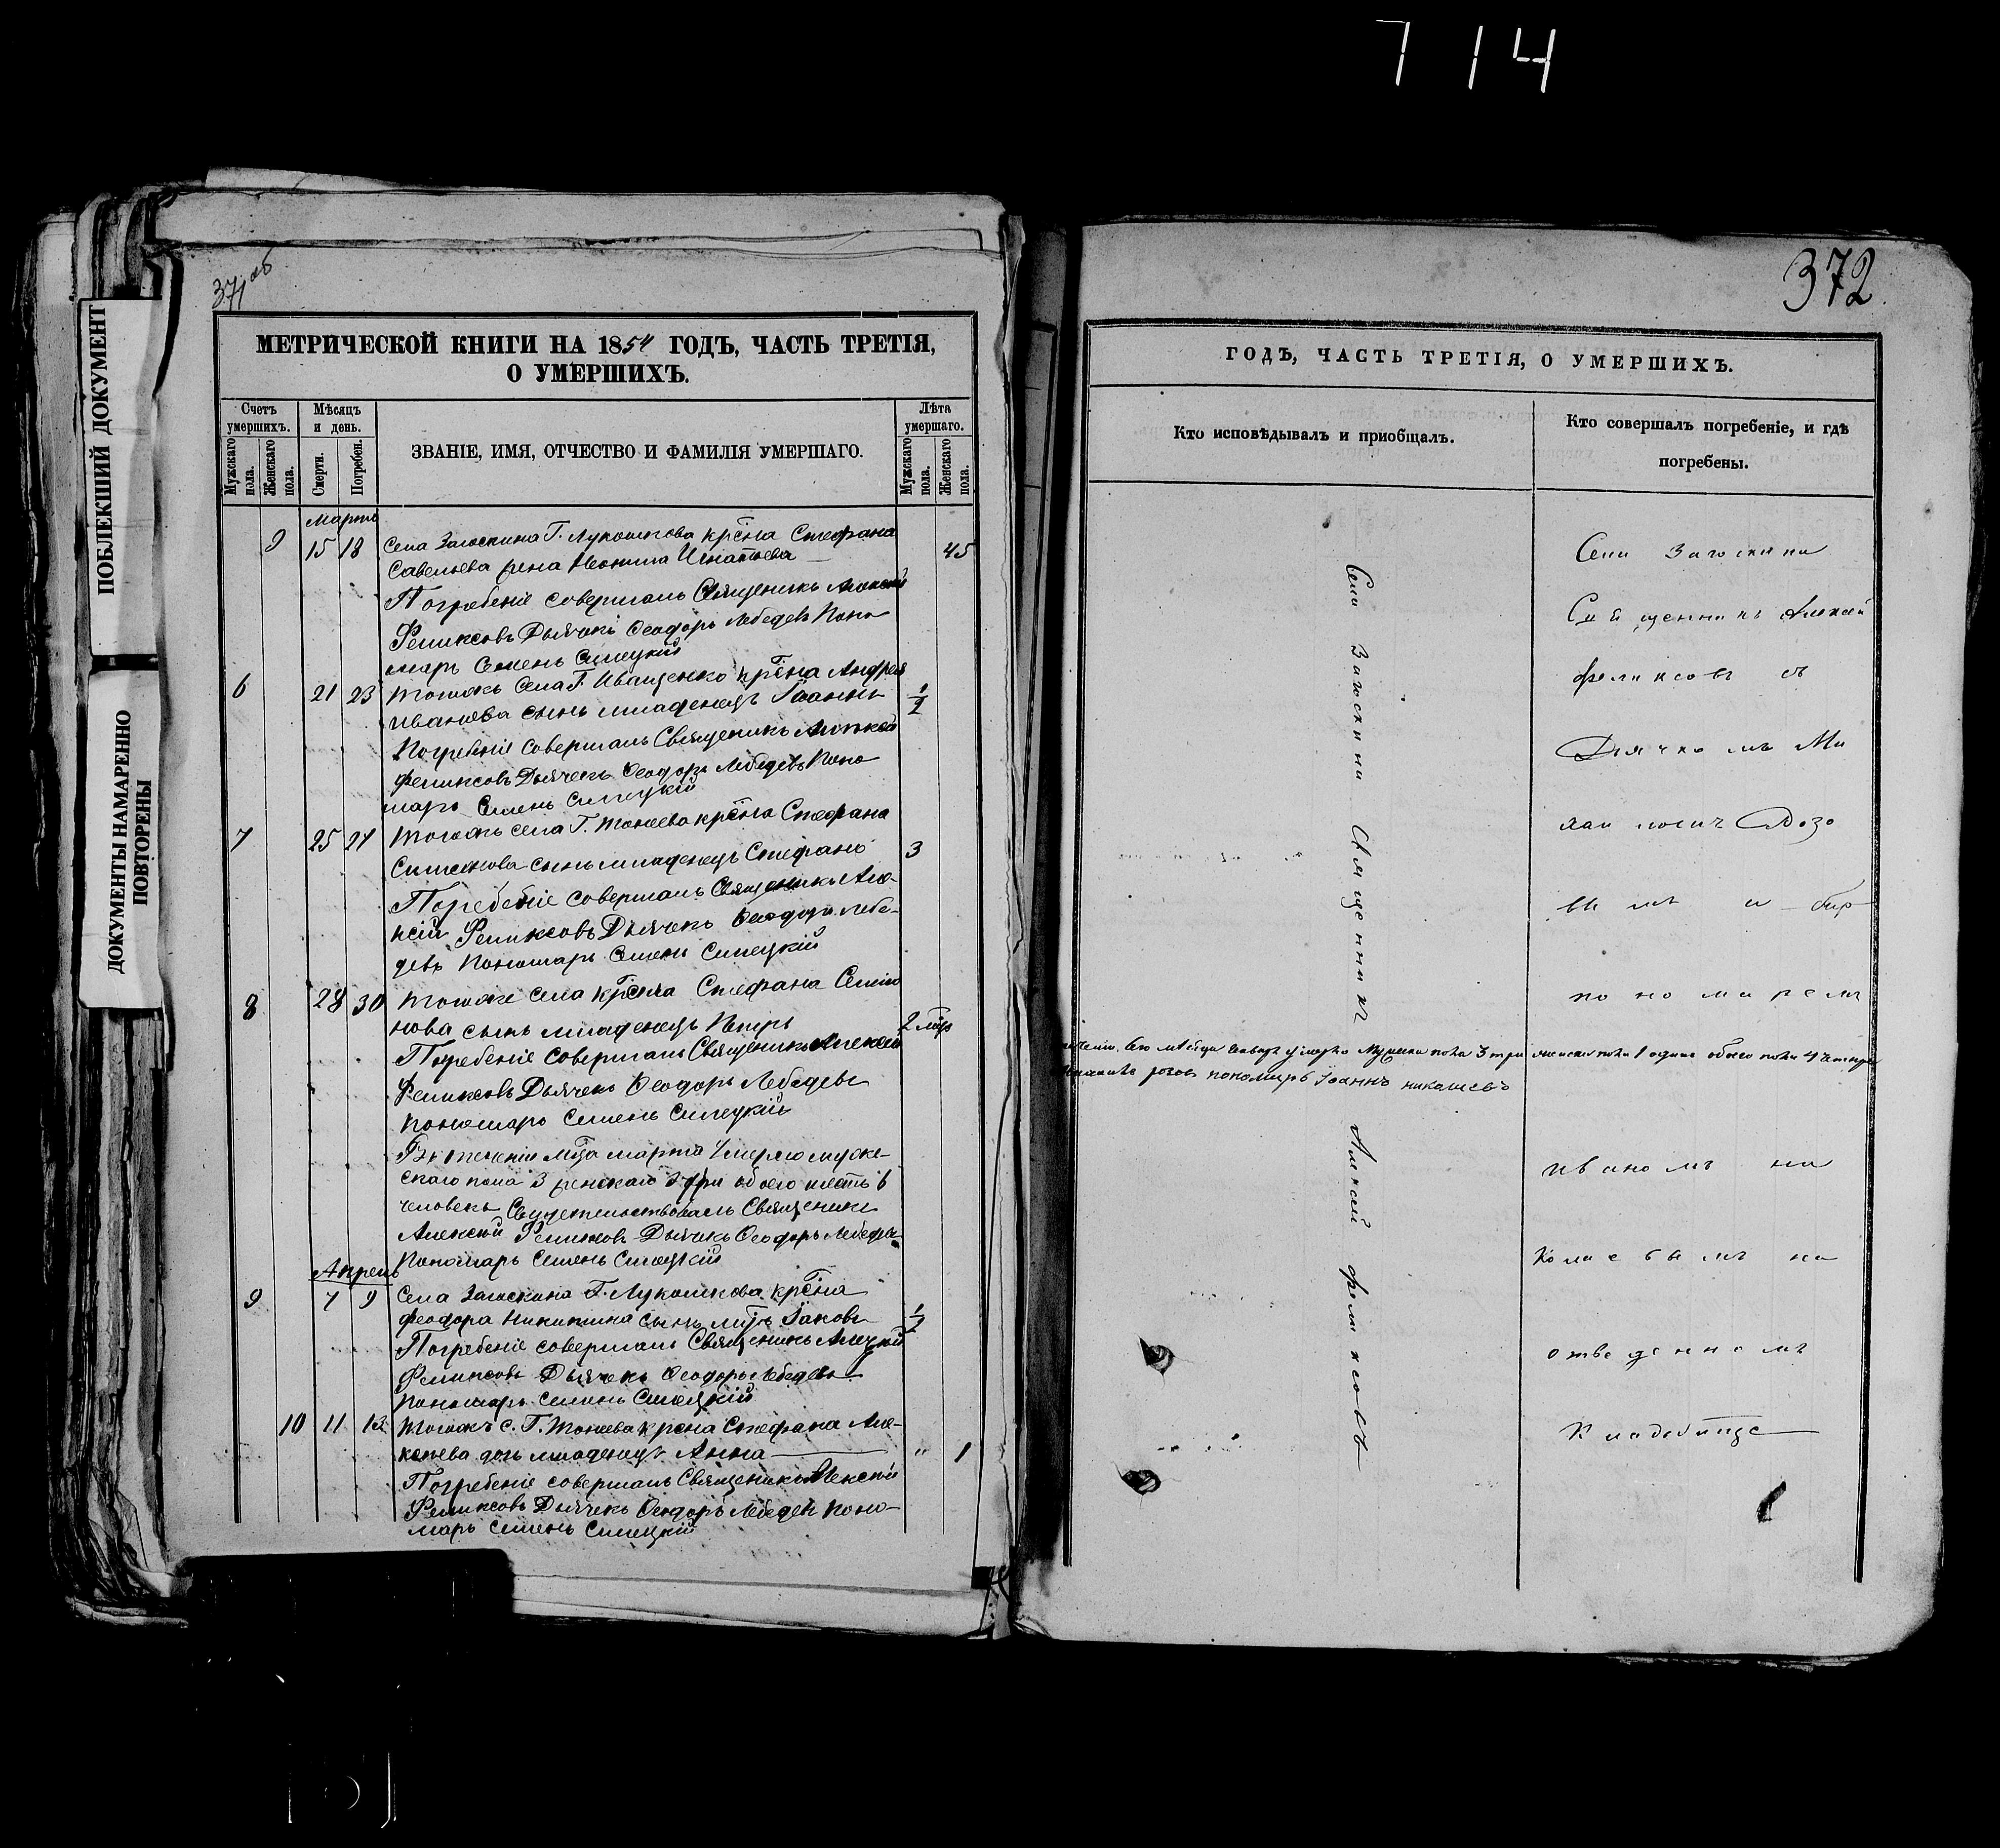 7 14
ПОБЛЕКШИЙ ДОКУМЕНТ
ДОКУМЕНТЫ НАМАРЕННО
ПОВТОРЕНЫ
371 об
МЕТРИЧЕСКОЙ КНИГИ НА 1854 ГОДЪ, ЧАСТЬ ТРЕТІЯ,
О УМЕРШИХЪ.
Счетъ умершихъ.
Мужскаго пола.
Женскаго пола.
Мѣсяцъ и день.
Смерти.
Погребен.
ЗВАНІЕ, ИМЯ, ОТЧЕСТВО И ФАМИЛІЯ УМЕРШАГО.
Лѣта умершаго.
Мужскаго пола.
Женскаго пола.
Мартъ
9 15 18 Села Загоскина Г. Лукошкова крѣна Стефана 45
Савельева жена Неонила Игнатьева
Погребеніе совершалъ Священникъ Алексей
Феликсовъ Дьячекъ Ѳеодоръ Лебедевъ Поно
марь Семенъ Силецкій
6 21 23 Тогожъ села Г. Иващенко крѣна Андрея
Иванова сынъ младенецъ Іоаннъ 1/2
Погребеніе совершалъ Священникъ Алексей
Феликсовъ Дьячекъ Ѳеодоръ Лебедевъ Поно
марь Семенъ Силецкій
7 25 27 Тогожъ села Г. Тонеева крѣна Стефана
сынъ младенецъ Стефанъ 3
Погребеніе совершалъ Священникъ Але-
ксій Феликсовъ Дьячекъ Ѳеодоръ Лебе-
девъ Пономарь Семенъ Силецкій
8 28 30 Тогоже села крѣна Стефана Семіо
нова сынъ младенецъ Петръ 2 мѣс
Погребеніе совершалъ Священникъ Алексей
Феликсовъ Дьячекъ Ѳеодоръ Лебедевъ
Пономарь Семенъ Силецкій
Въ теченіи мѣца марта умерло муже-
скаго пола 3 женскаго 3 три обоего 6
человекъ Свидетельствовалъ Священникъ
Алексей Феликсов Дьячекъ Ѳеодоръ Лебедевъ
Пономарь Семенъ Силецкій
Апрель
9 7 9 Села Загоскина Г. Лукошкова крѣна
Феодора Никитина сынъ Іаковъ 1/2
Погребеніе совершалъ Священникъ Алексей
Феликсовъ Дьячекъ Ѳеодоръ Лебедевъ
Пономарь Семенъ Силецкій
10 11 13 Тогожъ с. Г. Тонеева крѣна Стефана Але-
ксеева дочь младенецъ Анна " 1
Погребеніе совершалъ Священникъ Алексей
Феликсовъ Дьячекъ Ѳеодоръ Лебедевъ Поно-
марь Семенъ Силецкій
372
ГОДЪ, ЧАСТЬ ТРЕТІЯ, О УМЕРШИХЪ.
Кто исповѣдывалъ и приобщалъ.
Кто совершалъ погребеніе, и гдѣ
погребены.
Села Загоскина Священникъ Алексей Феликсовъ
Села Загоскина
Священникъ Алексей
Феликсовъ съ
Дьячкомъ Ми
вымъ и
пономаремъ
месяца Генваря умерло мужеска пола 3 три женска пола 1 одна обоего пола 4 четыре
пономарь Іоаннъ
Иваномъ
на
отведенномъ
Кладбище